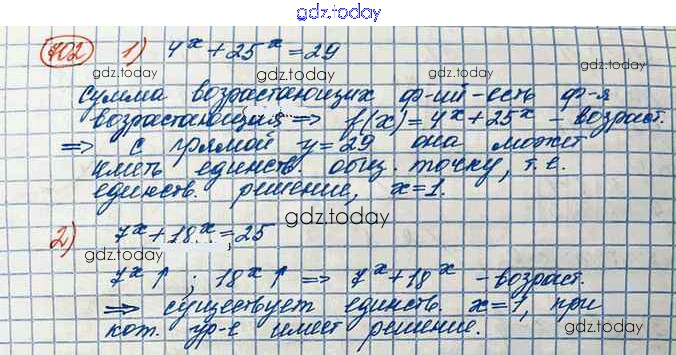 gdz.today
702 1) 4^x + 25^x = 29
gdz.today gdz.today
Сумма возрастающих ф-ий - есть ф-я
gdz.today gdz.today
возрастающая => f(x) = 4^x + 25^x - возраст.
=> с прямой y = 29 она может
gdz.today gdz.today
иметь единств. общ. точку, т.е.
единств. решение, x = 1.
gdz.today
2) 7^x + 18^x = 25
gdz.today gdz.today
7^x ↑ ; 18^x ↑ => 7^x + 18^x - возраст.
=> существует единств. x = 1, при
gdz.today gdz.today
кот. ур-е имеет решение.